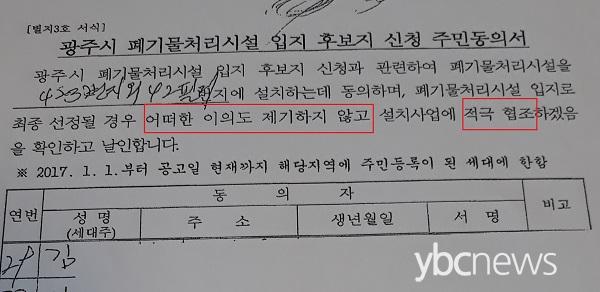 [별지3호 서식]
광주시 폐기물처리시설 입지 후보지 신청 주민동의서
광주시 폐기물처리시설 입지 후보지 신청과 관련하여 폐기물처리시설을
453번지외 42필지에 설치하는데 동의하며, 폐기물처리시설 입지로
최종 선정될 경우 어떠한 이의도 제기하지 않고 설치사업에 적극 협조하겠음
을 확인하고 날인합니다.
※ 2017. 1. 1.부터 공고일 현재까지 해당지역에 주민등록이 된 세대에 한함
연번 동 의 자 비고
성 명 주 소 생년월일 서 명
(세대주)
29 김
ybcnews